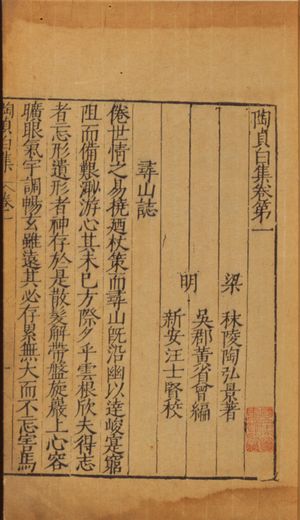 陶貞白集卷第一
梁 秣陵陶弘景著
明 吳郡黃省曾編
新安汪士賢校
尋山誌
倦世情之易撓廼杖策而尋山旣沿幽以達峻寔窮
阻而備艱渺游心其未已方際夕乎雲根欣夫得志
者忘形遺形者神存於是散髮解帶盤旋巖上心容
曠眼氣宇調暢玄雖遠其必存累無大而不忘害馬
陶貞白集 卷一 一